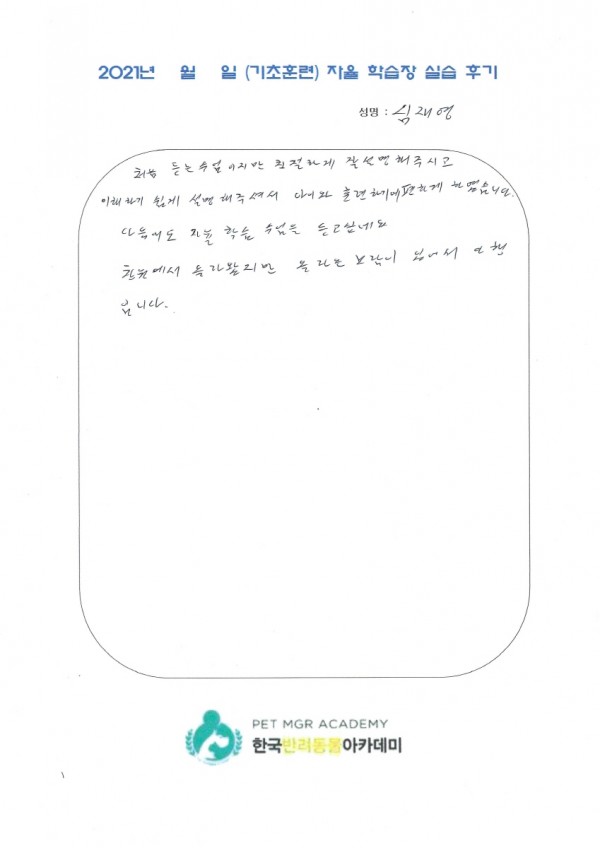 2021년 월 일 (기초훈련) 자율 학습장 실습 후기
성명 : 심재영
처음 듣는수업이지만 친절하게 잘설명해주시고
이해하기 쉽게 설명해주셔서 다이와 훈련하기에편하게 하였습니다.
다음에도 자율 학습 수업을 듣고싶네요
창원에서 올라왔지만 올라온 보람이 있어서 다행
입니다.
PET MGR ACADEMY
한국반려동물아카데미